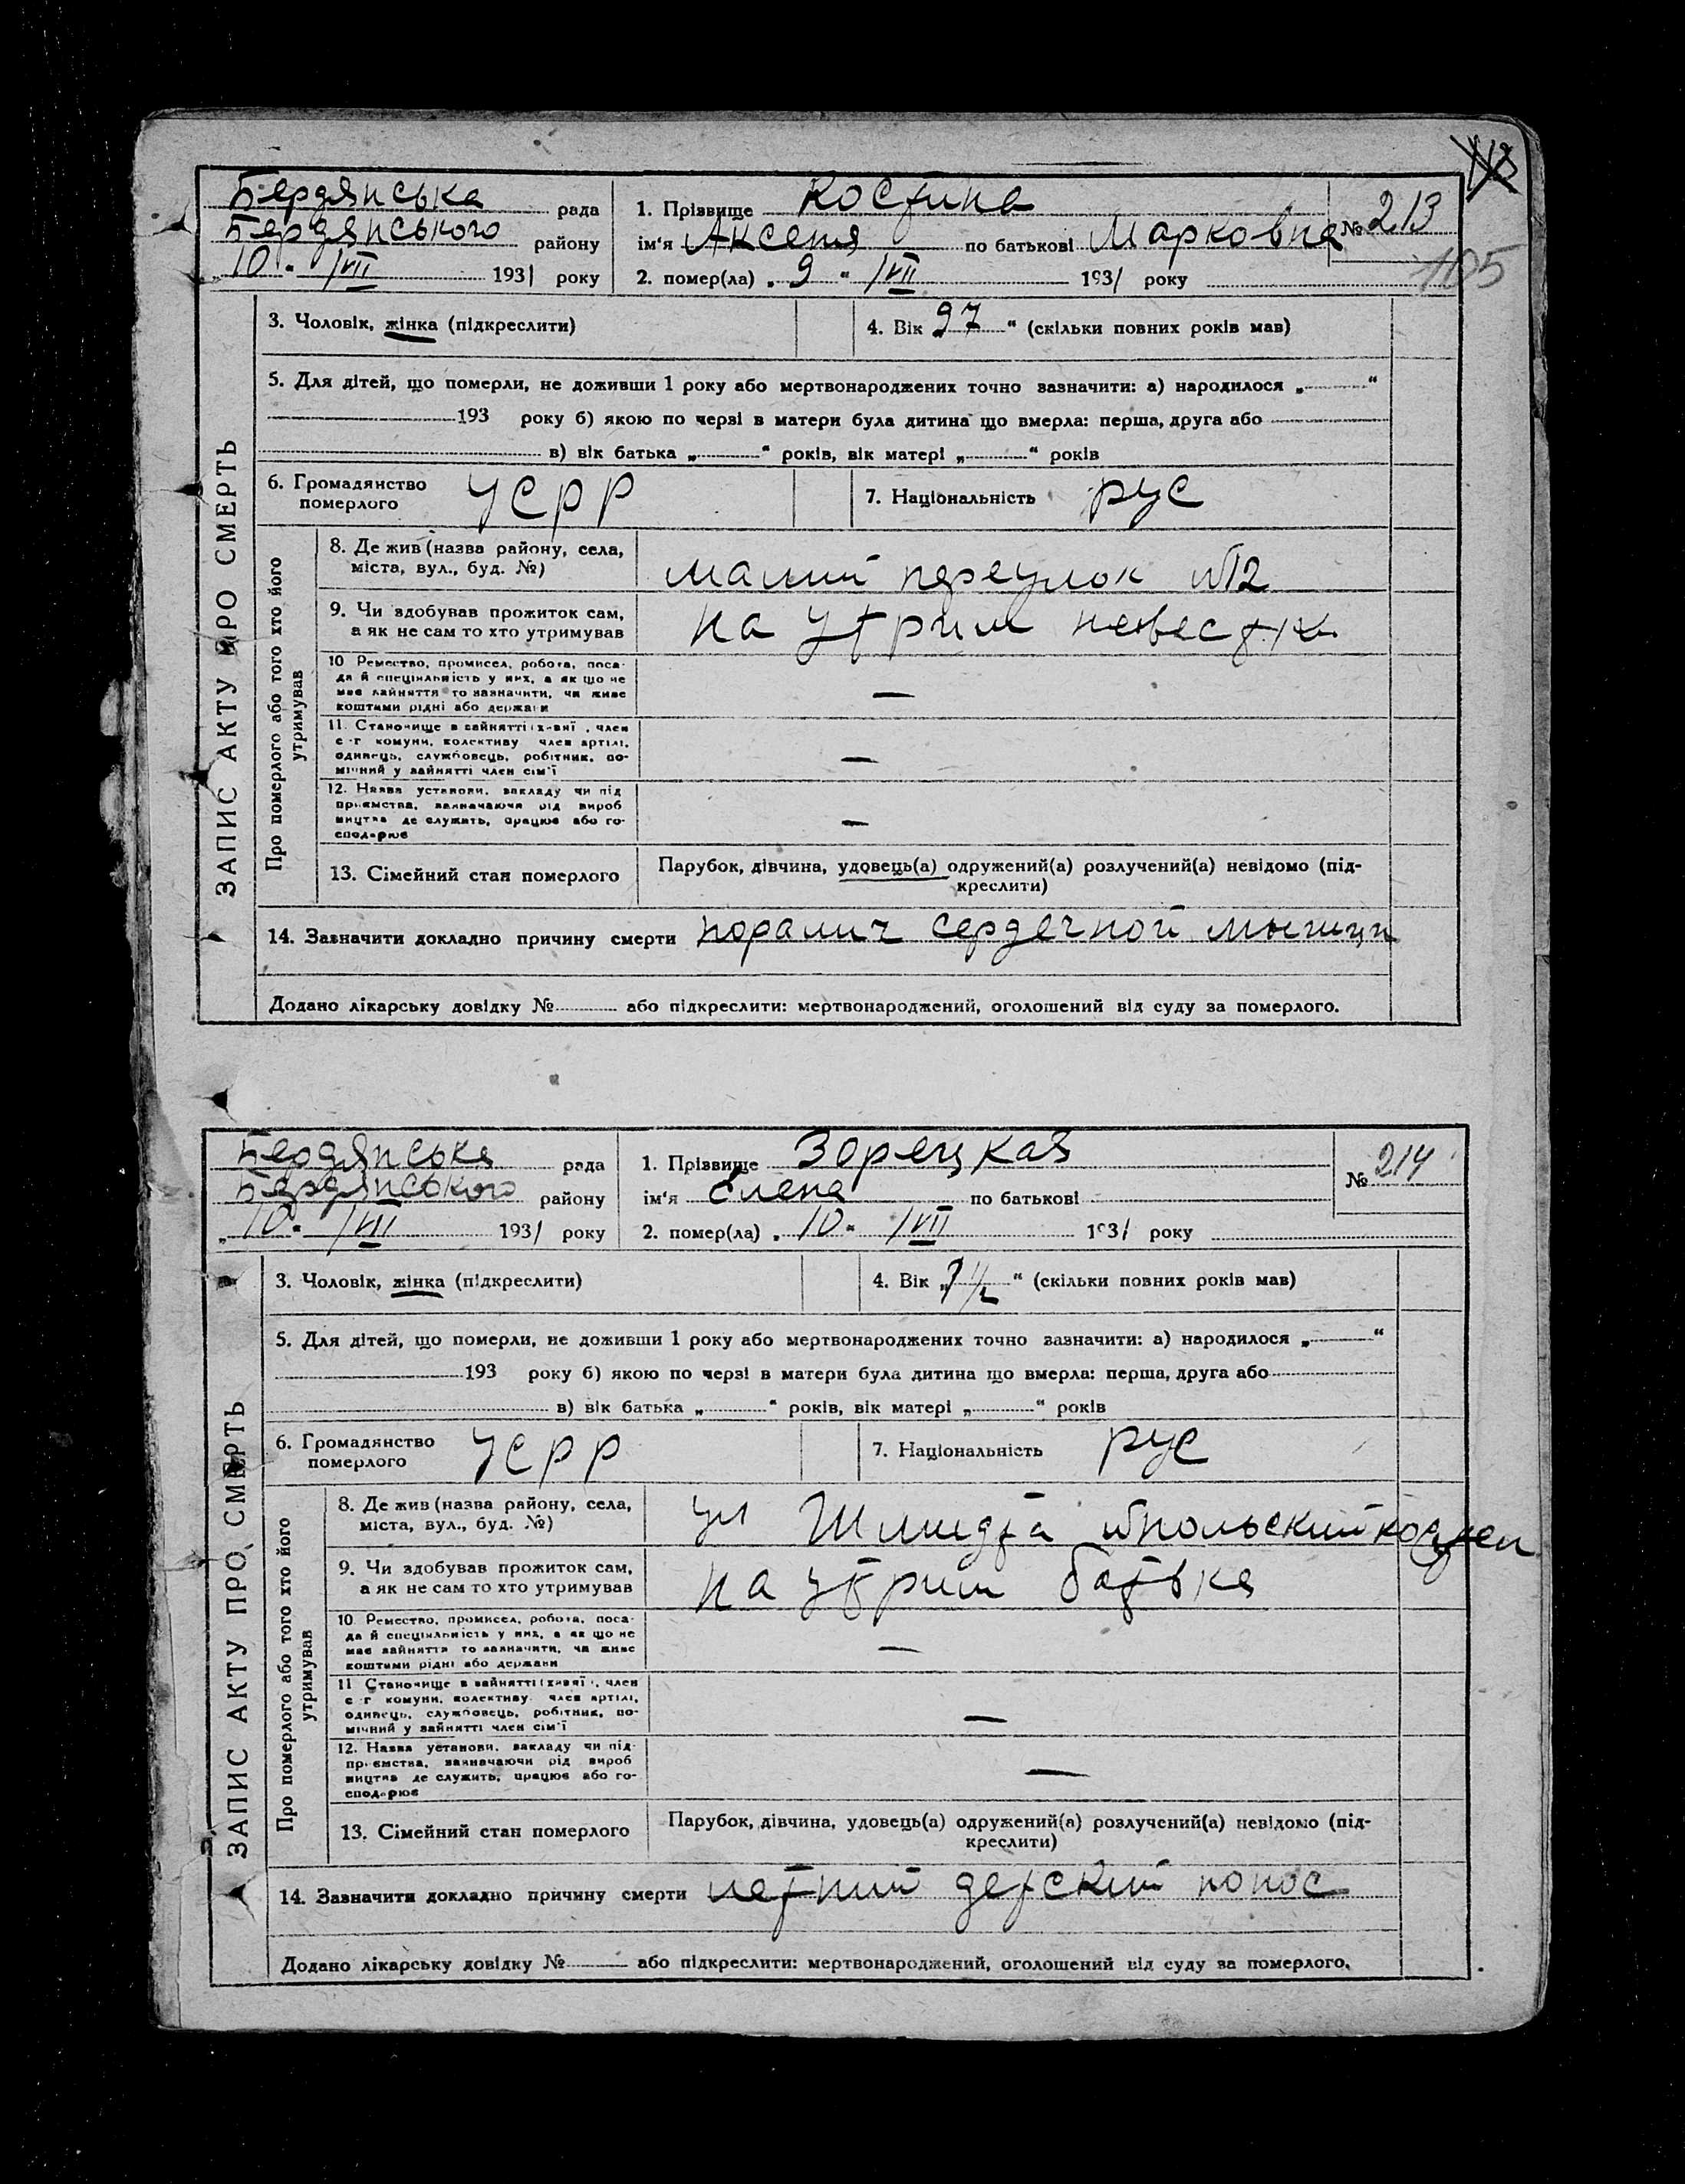 Бердянська рада
Бердянського району
„10“ /VII 1931 року
1. Прізвище Костина
ім'я Аксеня по батькові Марковна
№ 213
105
2. помер(ла) „9“ /VII 1931 року
3. Чоловік, жінка (підкреслити)
4. Вік 97 “ (скільки повних років мав)
5. Для дітей, що померли, не доживши 1 року або мертвонароджених точно зазначити: а) народилося „ “
193 року б) якою по черзі в матери була дитина що вмерла: перша, друга або
в) вік батька „ “ років, вік матері „ “ років
6. Громадянство
померлого
УСРР
7. Національність рус
ЗАПИС АКТУ ПРО СМЕРТЬ
Про померлого або того хто його
утримував
8. Де жив (назва району, села,
міста, вул., буд. №)
малий переулок №12
9. Чи здобував прожиток сам,
а як не сам то хто утримував
на утрим невестки
10 Ремество, промисел, робота, поса-
да й спеціяльність у них, а як що не
має зайняття то зазначити, чи живе
коштами рідні або держави
—
11. Становище в зайнятті (хазяї, член
с-г комуни, колективу член артілі,
одинець, службовець, робітник, по-
мічний у зайнятті член сім'ї
—
12. Назва установи, закладу чи під
приємства, зазначаючи рід вироб
ництва де служить, працює або го-
сподарює
—
13. Сімейний стан померлого
Парубок, дівчина, удовець(а) одружений(а) розлучений(а) невідомо (під-
креслити)
14. Зазначити докладно причину смерти поралич сердечной мышци
Додано лікарську довідку № або підкреслити: мертвонароджений, оголошений від суду за померлого.
Бердянська рада
Бердянського району
„10“ /VII 1931 року
1. Прізвище Зорецкая
ім'я Елена по батькові
№ 214
2. помер(ла) „10“ /VII 1931 року
3. Чоловік, жінка (підкреслити)
4. Вік „1 1/2“ (скільки повних років мав)
5. Для дітей, що померли, не доживши 1 року або мертвонароджених точно зазначити: а) народилося „ “
193 року б) якою по черзі в матери була дитина що вмерла: перша, друга або
в) вік батька „ “ років, вік матері „ “ років
6. Громадянство
померлого
УСРР
7. Національність рус
ЗАПИС АКТУ ПРО СМЕРТЬ
Про померлого або того хто його
утримував
8. Де жив (назва району, села,
міста, вул., буд. №)
ул Шмидта польский костел
9. Чи здобував прожиток сам,
а як не сам то хто утримував
на утрим батька
10. Ремество, промисел, робота, поса-
да й спеціяльність у них, а як що не
має зайняття то зазначити, чи живе
коштами рідні або держави
—
11 Становище в зайнятті (хазяї, член
с-г комуни, колективу член артілі,
одинець, службовець, робітник, по-
мічний у зайнятті член сім'ї
—
12. Назва установи, закладу чи під-
приємства, зазначаючи рід вироб
ництва де служить, працює або го-
сподарює
—
13. Сімейний стан померлого
Парубок, дівчина, удовець(а) одружений(а) розлучений(а) невідомо (під-
креслити)
14. Зазначити докладно причину смерти летний детский понос
Додано лікарську довідку № або підкреслити: мертвонароджений, оголошений від суду за померлого.